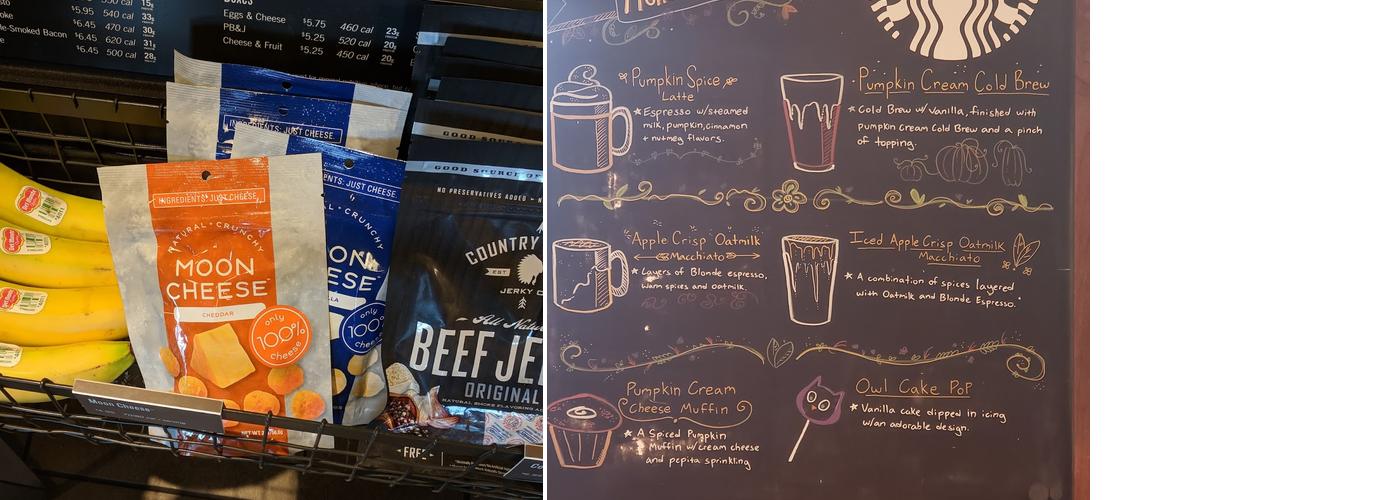 550 cal 15g
$5.95 540 cal 33g
$6.45 470 cal 30g
-Smoked Bacon $6.45 620 cal 31g
$6.45 500 cal 28g
Eggs & Cheese $5.75 460 cal 23g
PB&J $5.25 520 cal 20g
Cheese & Fruit $5.25 450 cal 20g
INGREDIENTS: JUST CHEESE.
ENTS: JUST CHEESE.
INGREDIENTS: JUST CHEESE.
NATURAL • CRUNCHY
MOON
CHEESE
CHEDDAR
only
100%
cheese
NET WT 2
L • CRUNCHY
OON
ESE
only
100%
cheese
Del Monte
Del Monte
Del Monte
Del Monte
Moon Cheese
GOOD SOURCE
GOOD SOURCE OF
NO PRESERVATIVES ADDED
COUNTRY
EST
JERKY C
All Natu
BEEF JE
ORIGINAL
NATURAL SMOKE FLAVORING
FREE
Pumpkin Spice
Latte
Espresso w/steamed
milk, pumpkin, cinnamon
+ nutmeg flavors.
Pumpkin Cream Cold Brew
Cold Brew w/ Vanilla, finished with
pumpkin cream Cold Brew and a pinch
of topping.
Apple Crisp Oatmilk
Macchiato
Layers of Blonde espresso,
warm spices and oatmilk.
Iced Apple Crisp Oatmilk
Macchiato
A combination of spices layered
with Oatmilk and Blonde Espresso.
Pumpkin Cream
Cheese Muffin
A Spiced Pumpkin
Muffin w/cream cheese
and pepita sprinkling
Owl Cake Pop
Vanilla cake dipped in icing
w/an adorable design.